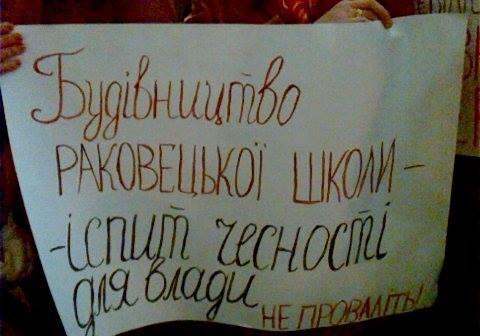 Будівництво
РАКОВЕЦЬКОЇ ШКОЛИ –
– іспит чесності
для влади
НЕ ПРОВАЛІТЬ!